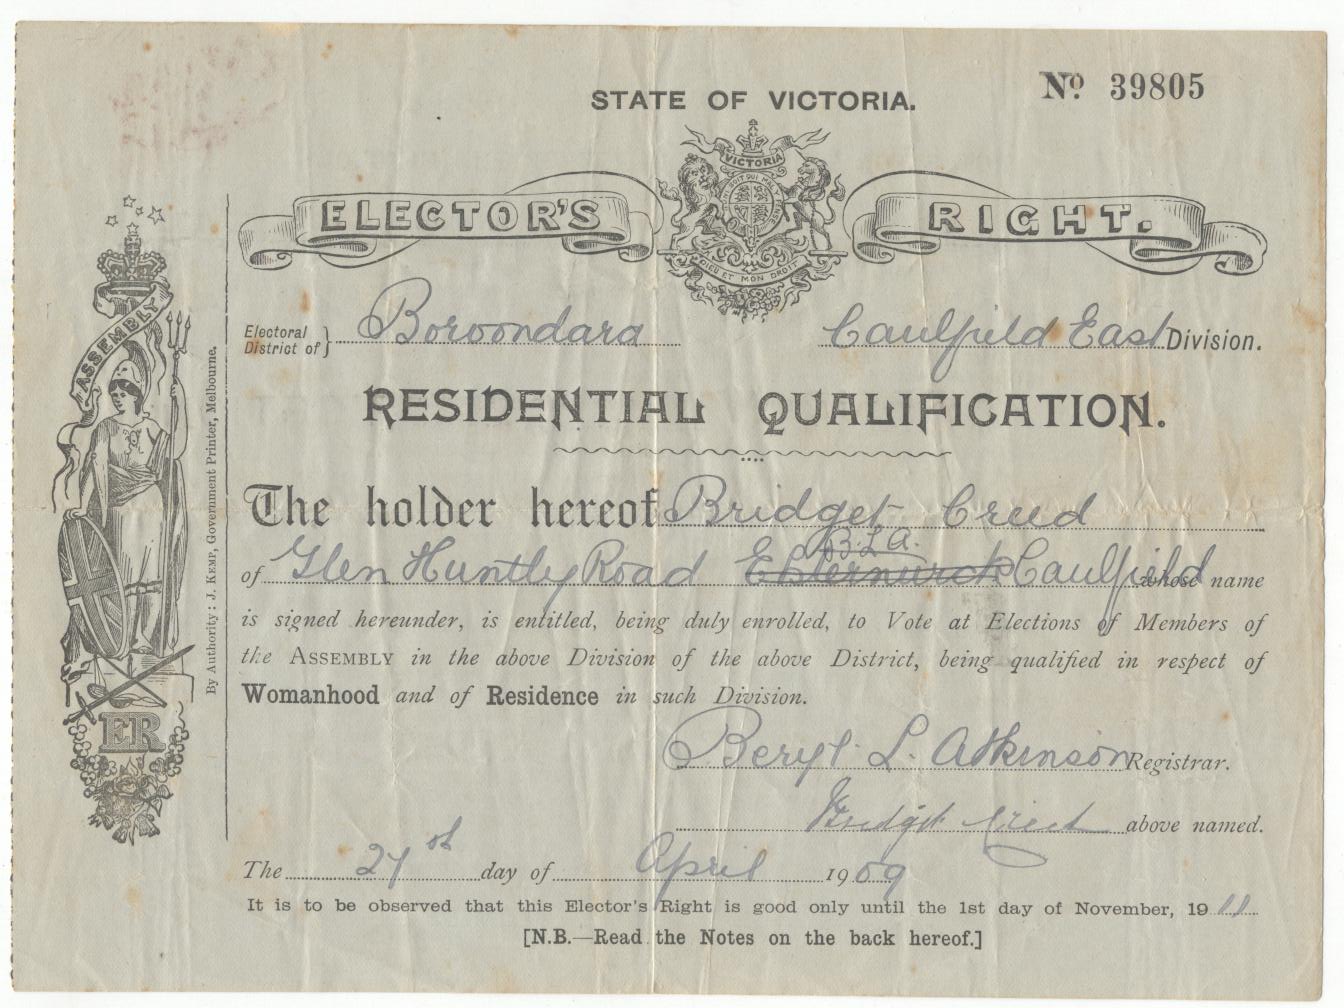 No 39805
STATE OF VICTORIA.
VICTORIA
ELECTOR'S RIGHT.
DIEU ET MON DROIT
ASSEMBLY
Electoral District of } Boroondara Caulfield East Division.
RESIDENTIAL QUALIFICATION.
The holder hereof Bridget Creed
B.L.A.
of Glen Huntly Road Elsternwick Caulfield whose name
is signed hereunder, is entitled, being duly enrolled, to Vote at Elections of Members of
the ASSEMBLY in the above Division of the above District, being qualified in respect of
Womanhood and of Residence in such Division.
Beryl L. Atkinson Registrar.
Bridget Creed above named.
The 27th day of April 1909
It is to be observed that this Elector's Right is good only until the 1st day of November, 1911
[N.B.—Read the Notes on the back hereof.]
By Authority: J. KEMP, Government Printer, Melbourne.
ER